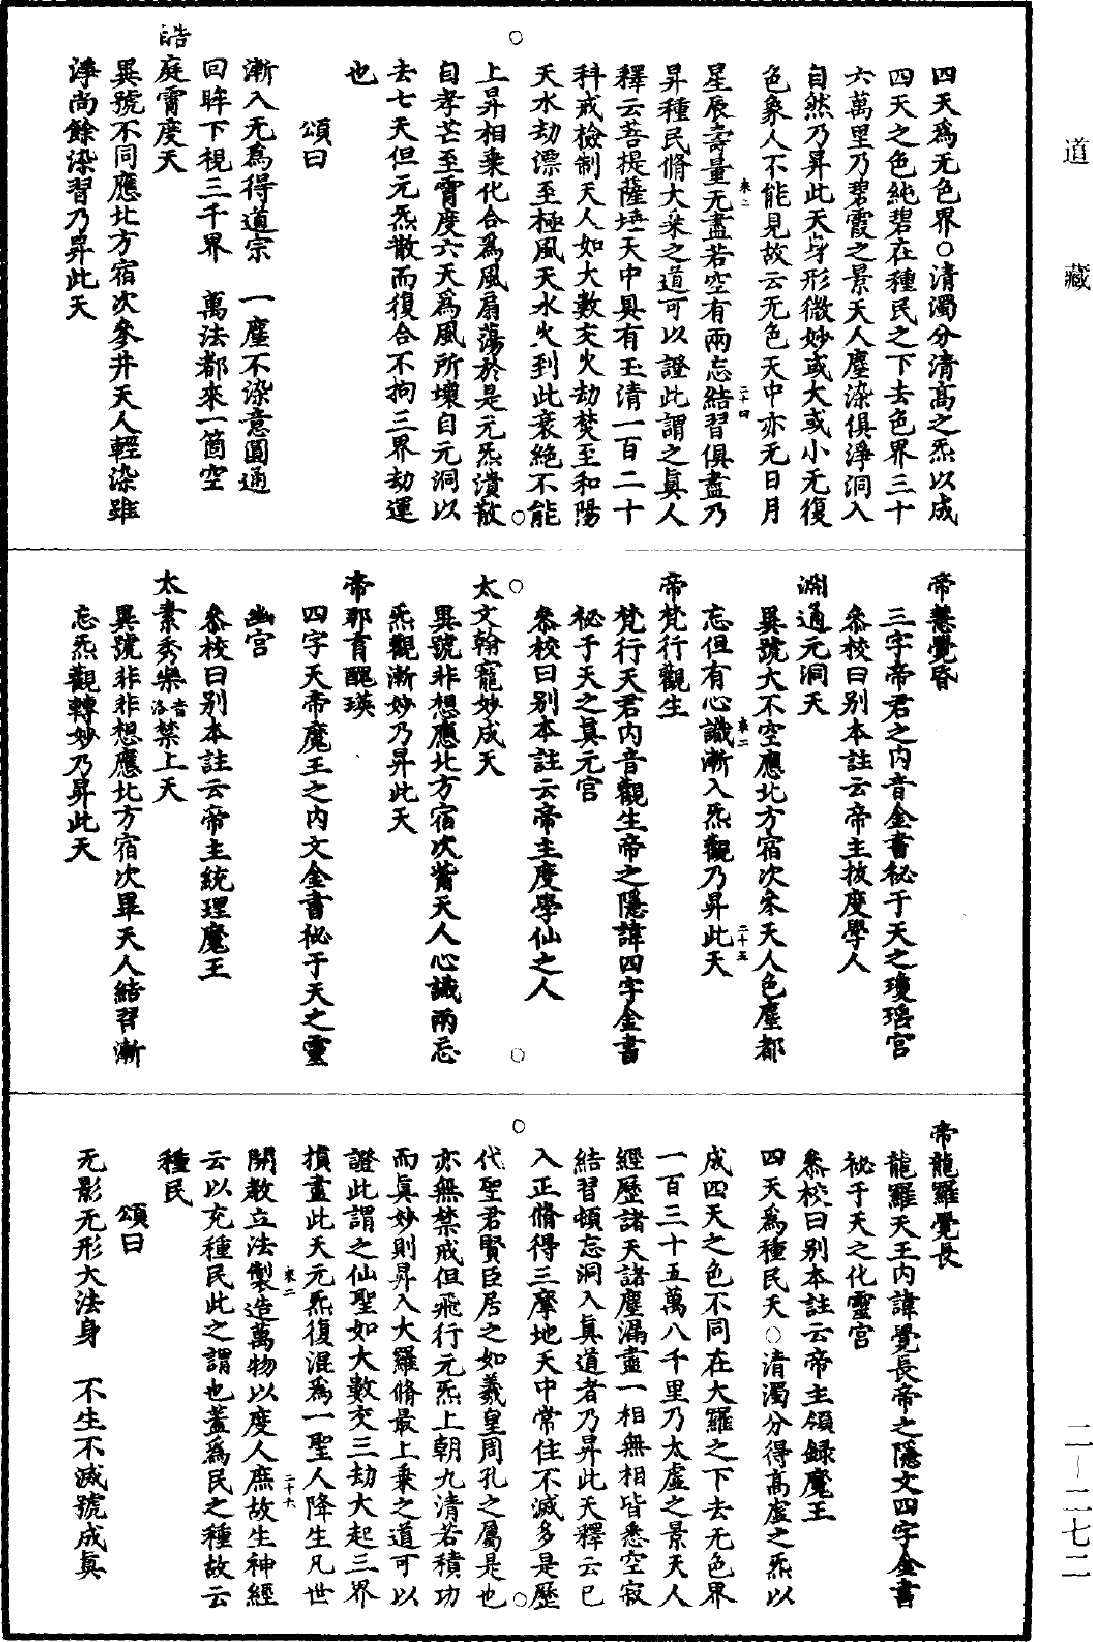 道藏
四天爲无色界○清濁分清高之炁以成
四天之色純碧在種民之下去色界三十
六萬里乃碧霞之景天人塵染俱淨洞入
自然乃昇此天身形微妙或大或小无復
色象人不能見故云无色天中亦无日月
星辰壽量无盡若空有兩忘結習俱盡乃
昇種民脩大乘之道可以證此謂之眞人
釋云菩提薩埵天中具有玉清一百二十
科戒檢制天人如大數交火劫焚至和陽
天水劫漂至極風天水火到此衰絶不能
上昇相乘化合爲風扇蕩於是元炁潰散
自孝芒至霄度六天爲風所壞自元洞以
去七天但元炁散而復合不拘三界劫運
也
頌曰
漸入无爲得道宗 一塵不染意圓通
回眸下視三千界 萬法都來一箇空
皓庭霄度天
異號不同應北方宿次參井天人輕染雖
淨尚餘染習乃昇此天
帝慧覺昏
三字帝君之内音金書祕于天之瓊瑤宮
叅校曰别本註云帝主拔度學人
淵通元洞天
異號大不空應北方宿次 天人色塵都
忘但有心識漸入炁觀乃昇此天
帝梵行觀生
梵行天君内音觀生帝之隱諱四字金書
祕于天之眞元宮
叅校曰别本註云帝主度學仙之人
太文翰寵妙成天
異號非想應北方宿次觜天人心識兩忘
炁觀漸妙乃昇此天
帝那育醜瑛
四字天帝魔王之内文金書祕于天之靈
幽宮
叅校曰别本註云帝主統理魔王
太素秀樂音洛禁上天
異號非非想應北方宿次畢天人結習漸
忘炁觀轉妙乃昇此天
帝龍羅覺長
龍羅天王内諱覺長帝之隱文四字金書
祕于天之化靈宮
叅校曰别本註云帝主領録魔王
四天爲種民天○清濁分得高虚之炁以
成四天之色不同在大羅之下去无色界
一百三十五萬八千里乃太虚之景天人
經歷諸天諸塵漏盡一相無相皆悉空寂
結習頓忘洞入眞道者乃昇此天釋云已
入正脩得三摩地天中常住不滅多是歷
代聖君賢臣居之如羲皇周孔之屬是也
亦無禁戒但飛行元炁上朝九清若積功
而眞妙則昇入大羅脩最上乘之道可以
證此謂之仙聖如大數交三劫大起三界
損盡此天元炁復混爲一聖人降生凡世
開教立法製造萬物以度人庶故生神經
云以充種民此之謂也蓋爲民之種故云
種民
頌曰
无影无形大法身 不生不滅號成眞
二-二七二